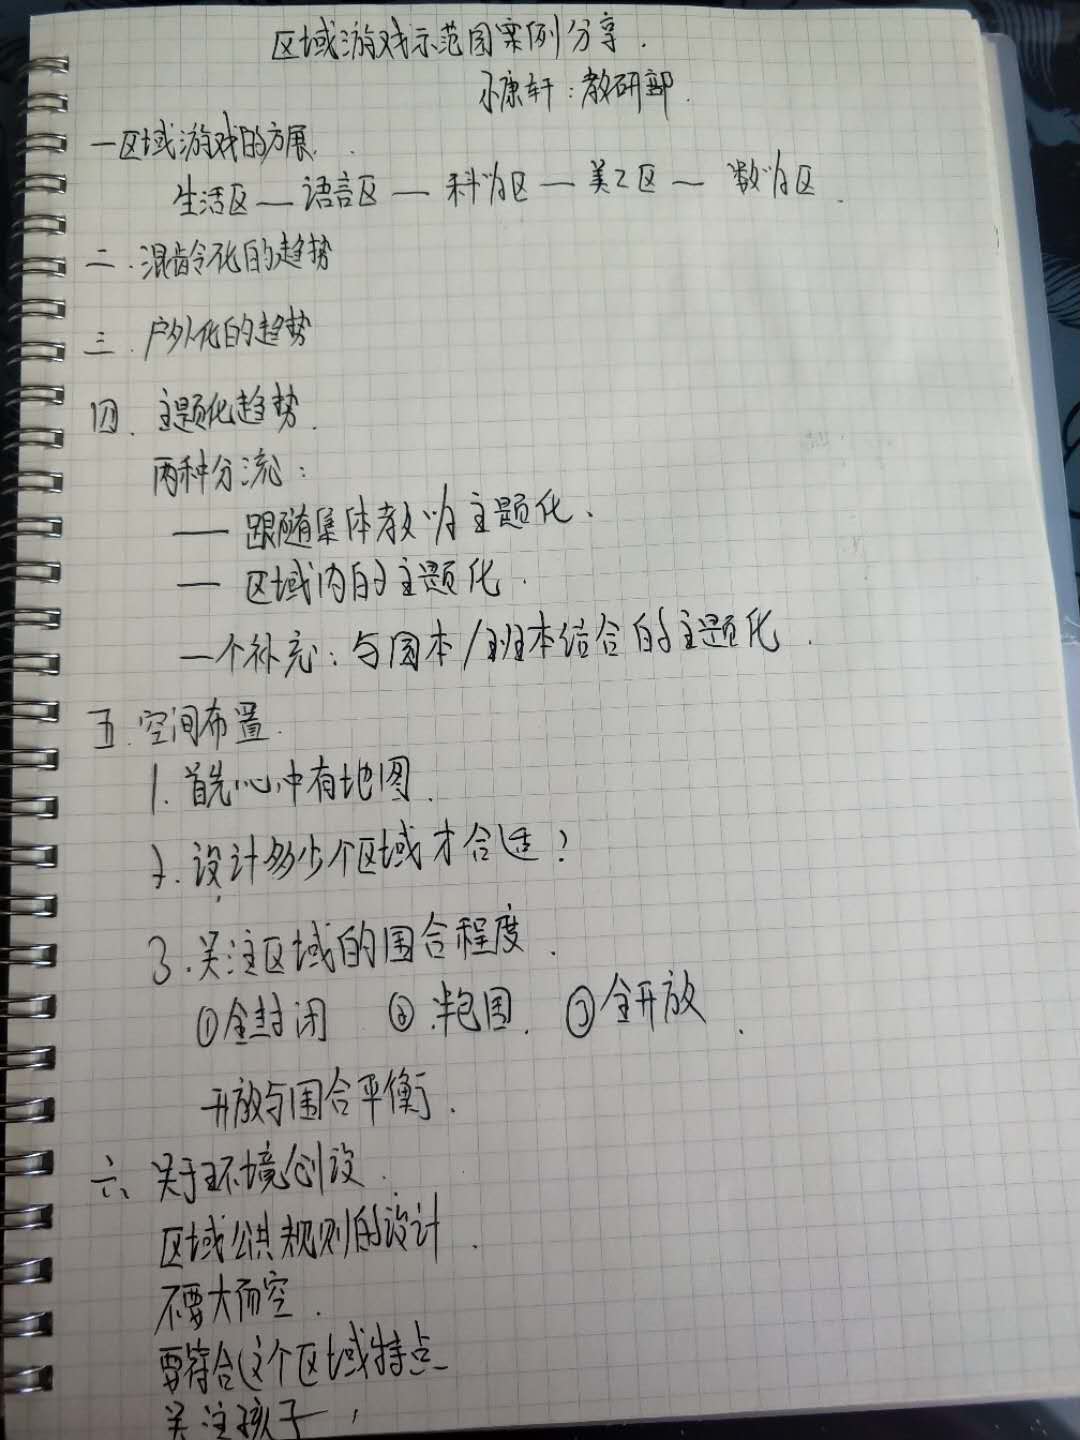 区域游戏示范园案例分享.
小康轩:教研部.
一区域游戏的方展.
生活区—语言区—科学区—美工区—数学区.
二.混龄化的趋势
三.户外化的趋势
四.主题化趋势.
两种分流:
—跟随集体教学主题化、
—区域内的主题化.
一个补充:与园本/班本结合的主题化.
五.空间布置.
1.首先心中有地图.
2.设计多少个区域才合适?
3.关注区域的围合程度.
①全封闭 ②半包围. ③全开放.
开放与围合平衡.
六、关于环境创设.
区域公共规则的设计.
不要大而空.
要符合这个区域特点
关注孩子,